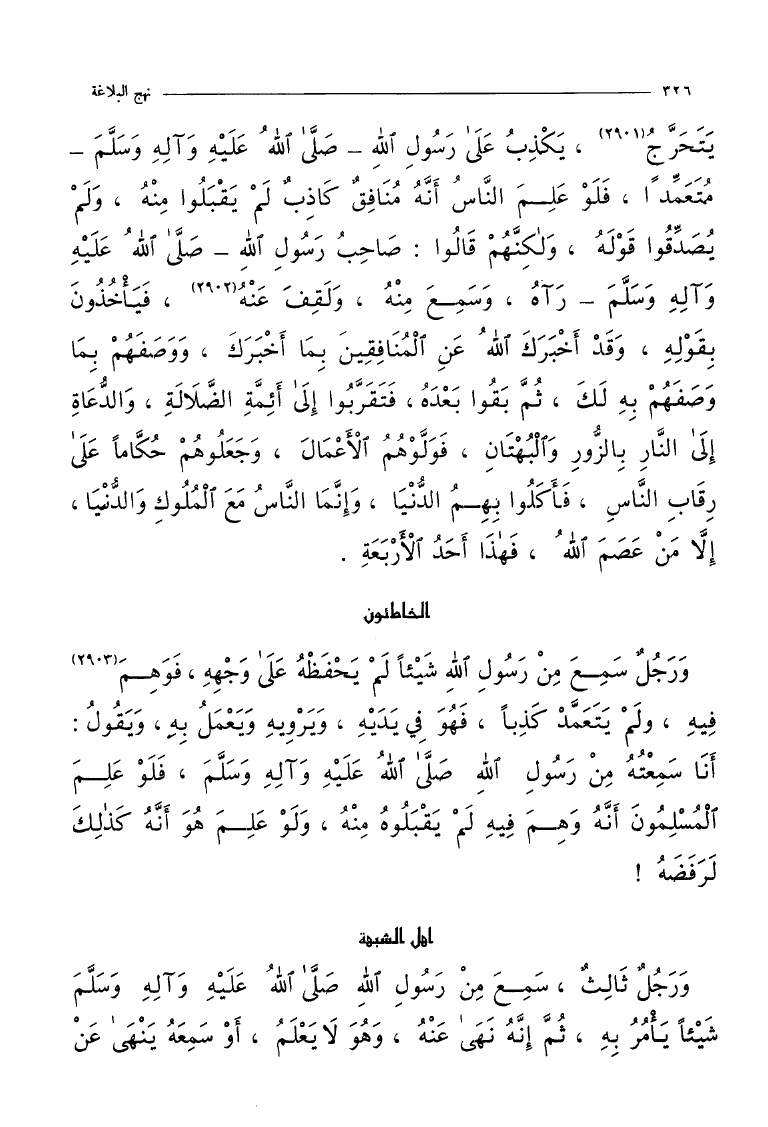 ٣٢٦ نهج البلاغة
يَتَحَرَّجُ(٢٩٠١) ، يَكْذِبُ عَلَىٰ رَسُولِ ٱللهِ – صَلَّىٰ ٱللهُ عَلَيْهِ وَآلِهِ وَسَلَّمَ –
مُتَعَمِّداً ، فَلَوْ عَلِمَ النَّاسُ أَنَّهُ مُنَافِقٌ كَاذِبٌ لَمْ يَقْبَلُوا مِنْهُ ، وَلَمْ
يُصَدِّقُوا قَوْلَهُ ، وَلٰكِنَّهُمْ قَالُوا : صَاحِبُ رَسُولِ ٱللهِ – صَلَّىٰ ٱللهُ عَلَيْهِ
وَآلِهِ وَسَلَّمَ – رَآهُ ، وَسَمِعَ مِنْهُ ، وَلَقِفَ عَنْهُ(٢٩٠٢) ، فَيَأْخُذُونَ
بِقَوْلِهِ ، وَقَدْ أَخْبَرَكَ ٱللهُ عَنِ ٱلْمُنَافِقِينَ بِمَا أَخْبَرَكَ ، وَوَصَفَهُمْ بِمَا
وَصَفَهُمْ بِهِ لَكَ ، ثُمَّ بَقُوا بَعْدَهُ ، فَتَقَرَّبُوا إِلَىٰ أَئِمَّةِ الضَّلَالَةِ ، وَالدُّعَاةِ
إِلَىٰ النَّارِ بِالزُّورِ وَٱلْبُهْتَانِ ، فَوَلَّوْهُمُ ٱلْأَعْمَالَ ، وَجَعَلُوهُمْ حُكَّاماً عَلَىٰ
رِقَابِ النَّاسِ ، فَأَكَلُوا بِهِمُ الدُّنْيَا ، وَإِنَّمَا النَّاسُ مَعَ ٱلْمُلُوكِ وَالدُّنْيَا ،
إِلَّا مَنْ عَصَمَ ٱللهُ ، فَهٰذَا أَحَدُ ٱلْأَرْبَعَةِ .
الخاطئون
وَرَجُلٌ سَمِعَ مِنْ رَسُولِ ٱللهِ شَيْئاً لَمْ يَحْفَظْهُ عَلَىٰ وَجْهِهِ ، فَوَهِمَ(٢٩٠٣)
فِيهِ ، وَلَمْ يَتَعَمَّدْ كَذِباً ، فَهُوَ فِي يَدَيْهِ ، وَيَرْوِيهِ وَيَعْمَلُ بِهِ ، وَيَقُولُ :
أَنَا سَمِعْتُهُ مِنْ رَسُولِ ٱللهِ صَلَّىٰ ٱللهُ عَلَيْهِ وَآلِهِ وَسَلَّمَ ، فَلَوْ عَلِمَ
ٱلْمُسْلِمُونَ أَنَّهُ وَهِمَ فِيهِ لَمْ يَقْبَلُوهُ مِنْهُ ، وَلَوْ عَلِمَ هُوَ أَنَّهُ كَذٰلِكَ
لَرَفَضَهُ !
اهل الشبهة
وَرَجُلٌ ثَالِثٌ ، سَمِعَ مِنْ رَسُولِ ٱللهِ صَلَّىٰ ٱللهُ عَلَيْهِ وَآلِهِ وَسَلَّمَ
شَيْئاً يَأْمُرُ بِهِ ، ثُمَّ إِنَّهُ نَهَىٰ عَنْهُ ، وَهُوَ لَا يَعْلَمُ ، أَوْ سَمِعَهُ يَنْهَىٰ عَنْ